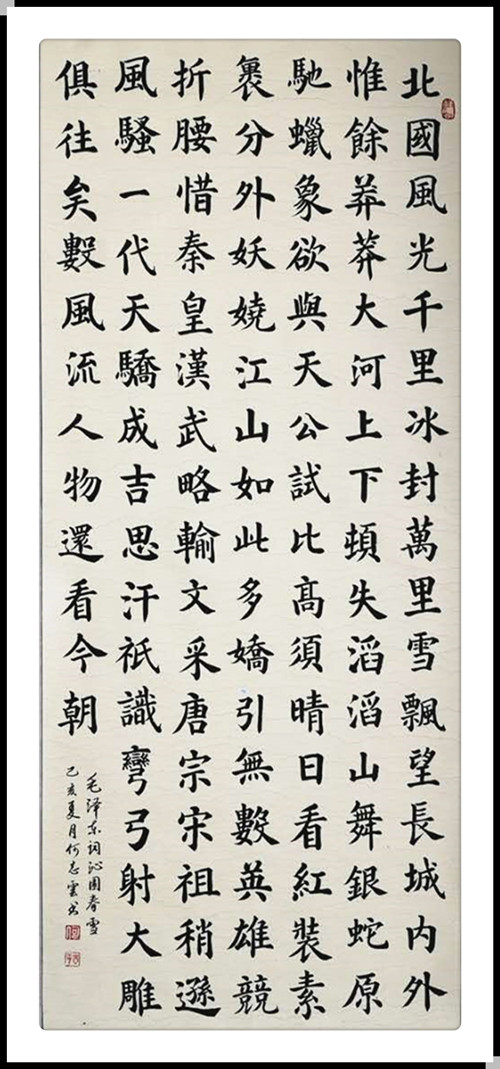 北國風光千里冰封萬里雪飄望長城内外
惟餘莽莽大河上下頓失滔滔山舞銀蛇原
馳蠟象欲與天公試比髙須晴日看紅裝素
裹分外妖嬈江山如此多嬌引無數英雄競
折腰惜秦皇漢武略輸文采唐宗宋祖稍遜
風騷一代天驕成吉思汗祇識彎弓射大雕
俱往矣數風流人物還看今朝
毛泽东词沁園春雪
己亥夏月何志雲书